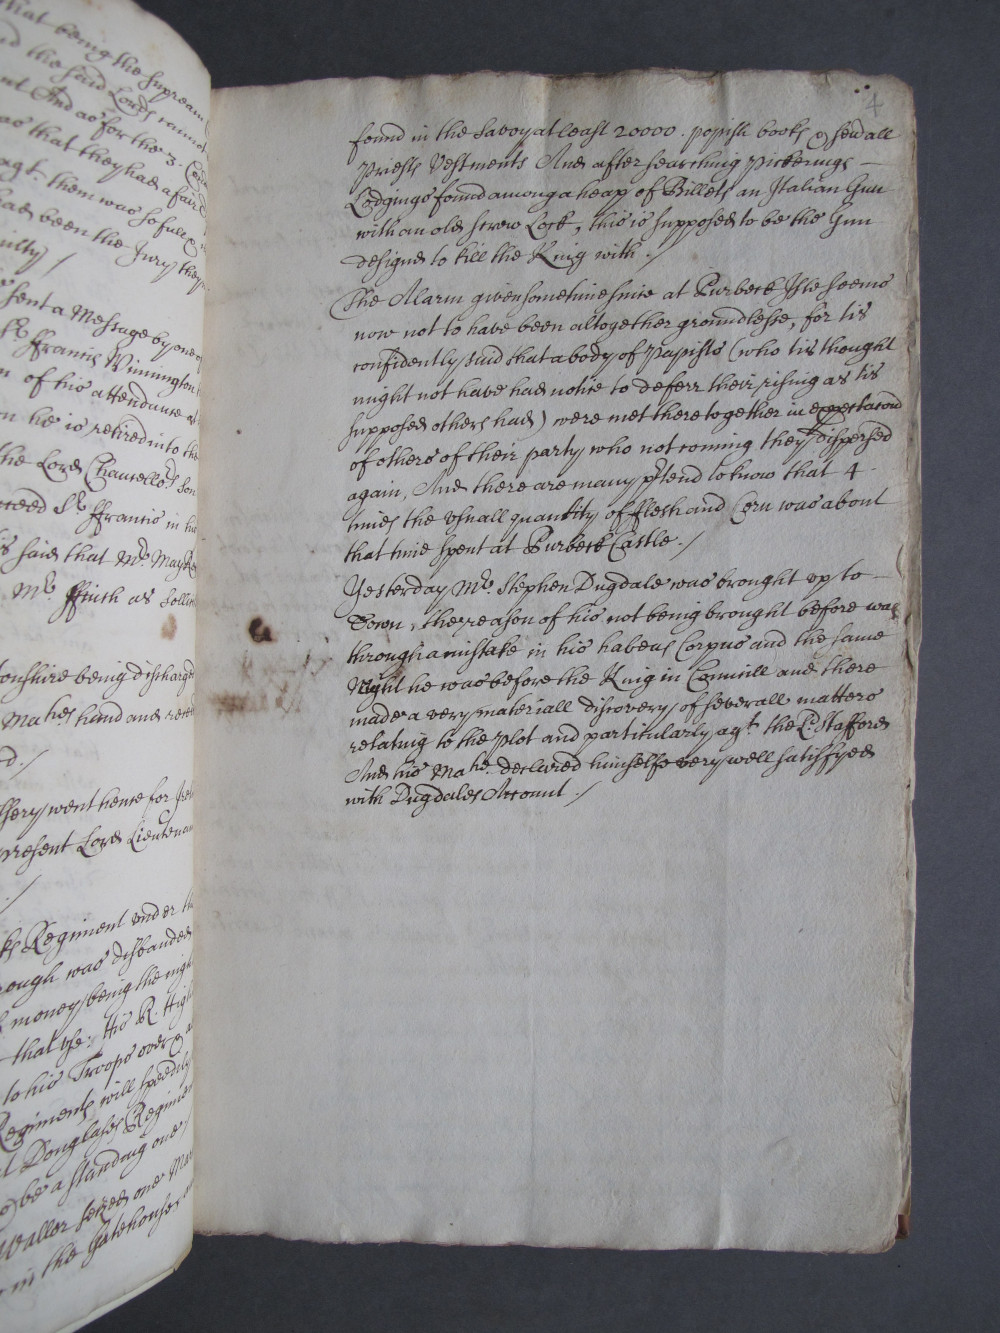 that being the supream
the said Lords cannot
And as for the 3.
that they had a faire
agt. them was so full
had been the Jury they
guilty /
sent a Message by one of
Sr. ffrancis Winnington
of his attendance at
he is retired into the
the Lord Chancellors. Son
succeed Sr. ffrancis in his
is said that Mr. May
Mr. ffinch as Sollici
onshire being discharged
Mats. hand and
d. /
went hence for Irel
present Lord Lieutenan
/
Regiment vnder th
rough was disbanded
money being the nigh
that vse: His R. High
to his Troops over &
Regiments will speedily
Douglass's Regimen
be a standing one /
Waller seized one Ma
in the Gatehouse
4
found in the Savoy at least 20000. popish books & severall
Priests Vestments And after searching Pickerings –
Lodgings found among a heap of Billets an Italian Gun
with an old screw Lock, this is supposed to be the Gun
designed to kill the King with. /
The Alarm given sometime since at Purbeck Isle seems
now not to have been altogether groundlesse, for tis
confidently said that a body of Papists (who tis thought
might not have had notice to deferr their rising as tis
supposed others had) were met there together in expectacon
of others of their party, who not coming they dispersed
again, And there are many p'tend to know that 4
times the vsuall quantity of fflesh and Corn was about
that time spent at Purbeck Castle. /
Yesterday Mr. Stephen Dugdale was brought vp to –
Town, the reason of his not being brought before was
through a mistake in his habeas Corpus and the same
Night he was before the King in Councill and there
made a very materiall discovery of severall matters
relating to the Plot and particularly agt. the L Stafford
And his Matie. declared himselfe very well satisfyed
with Dugdales Account. /